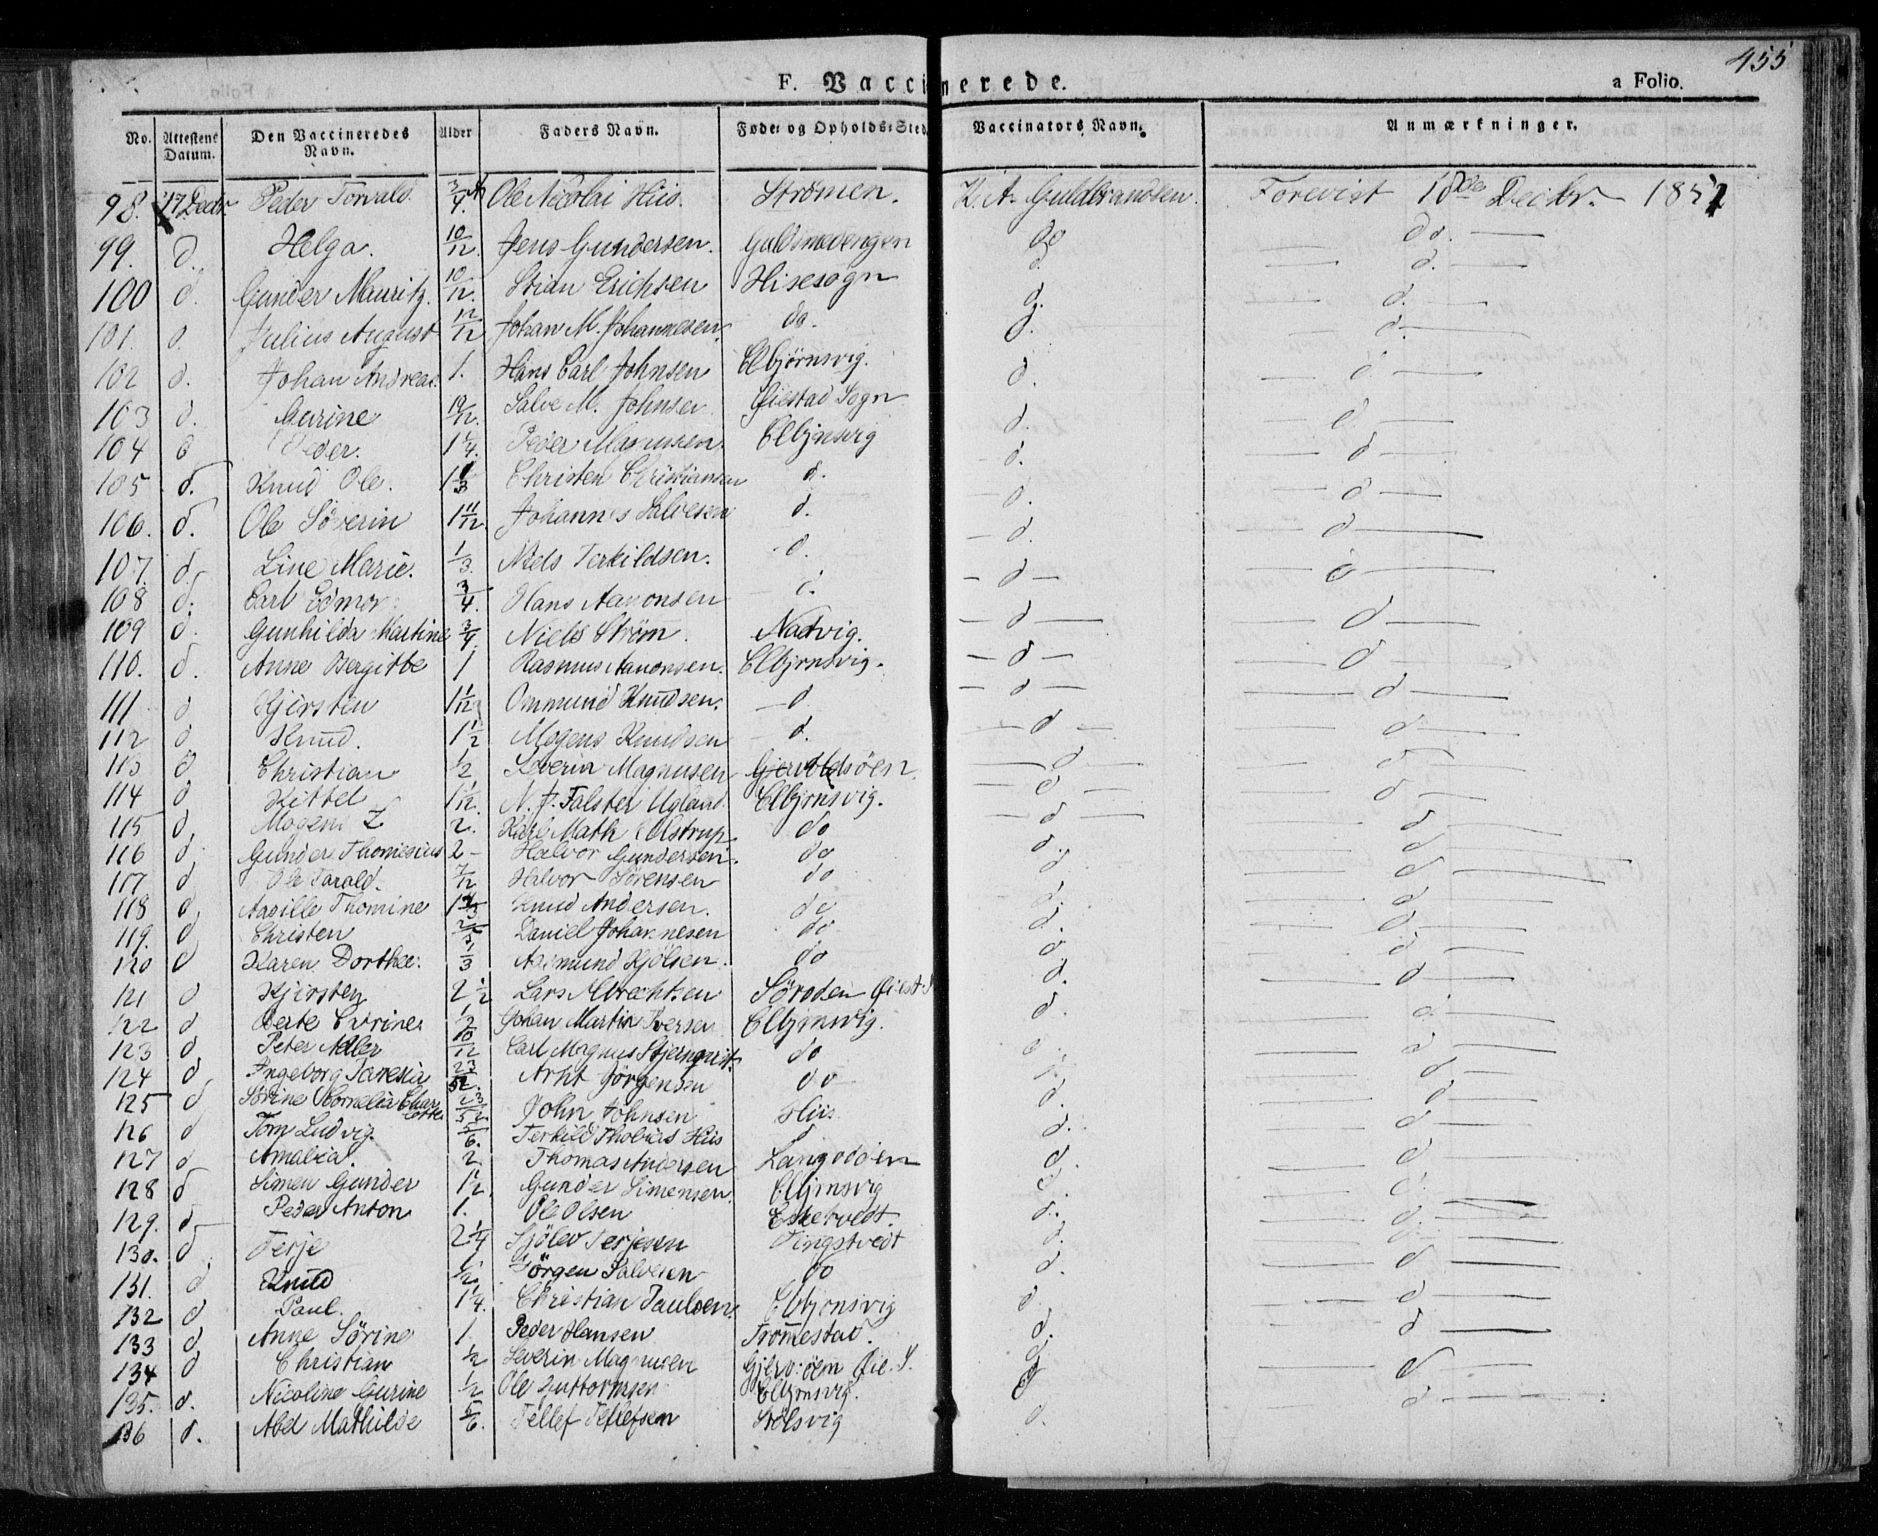 455
F. Vaccinerede.
a Folio.
No. Attestens Datum. Den Vaccineredes Navn. Alder Faders Navn. Føde- og Opholds-Sted Vaccinators Navn. Anmærkninger.
98. 17 Decbr Peder Torvald 3/4 A Ole Nicolai Hiis. Strömen. K. A. Guldbrandsen. Forevist 18de Decbr. 1851
99. d. Helga. 10/12. Jens Gundersen. Guldsmedengen do — do. —
100 d. Gunder Mauritz. 10/12. Stian Erichsen Hisesogn d. — d. —
101. d. Julius August 12/12 Johan M. Johannesen. do. d. — d. —
102 d. Johan Andreas. 1. Hans Carl Johnsen Elbjörnsvig. d. — d. —
103 d. Gurine 10/12. Salve M. Johnsen Øiestad Sogn d. — d —
104 d Peder. 1 1/4. Peder Magnussen. Elbjnsvig d. — d —
105 d. Knud Ole. 1 1/3 Christen Christiansen d. d. — d —
106. d. Ole Söverin 1 11/12. Johannes Salvesen d. d. — d —
107. d. Line Marie. 1/3. Niels Terkildsen. d. d. — d —
108 d. Carl Edmor 3/4. Hans Aanonsen d. — d — — d —
109 d. Gunhilda Martine 3/4. Niels Ström. Nadvig. — d — — d —
110. d. Anne Bergitte 1 Rasmus Aanonsen. Elbjrnsvig. — d — — d —
111 d Kjersten 1 1/12 Ommund Knudsen. — d — d — — d —
112 d Knud. 1 1/2 Mogens Knudsen d. — d — — d —
113 d Christian 1/2 Severin Magnusen Gjervoldsöen. — d — — d —
114 d Kittel 1 1/12. N. J. Falster Ugland. Elbjrnsvig. — d — — d —
115 d, Mogens Z 2. Karl Math Ulstrup do — d — — d —
116 d. Gunder Thomesius 2 – Halvor Gundersen. do d. — d —
117 d, Ole Tarald. 7/12 Halvor Sörensen do d — d —
118 d, Aasille Thomine Knud Andersen. do d. — d —
119. d Christen 2/3 Daniel Johannesen do d. — d —
120 d Karen Dorthee. 1/3 Aasmund Kjölsen. do d — d —
121 d Kjersten 2 1/2 Lars Albrechtsen Söroden Øiest. S d. — d —
122 d Berte Cirine 1/2 Johan Martin Iversen Elbjrnsvig. d. — d —
123 d, Peter Adler 10/12 Carl Magnus Stjernqvist. do d — d —
124 d, Ingeborg Taresia 23/52. Arnt Jörgensen do — d —
125 d Sörine Cornelia Charlotte John Johnsen Hiis d. — d —
126 d Tom Ludvig 5/6. Terkild Thobias Hiis d. — d —
127 d Amalia. 2 Thomas Andersen Langodöen d. — d —
128 d Simen Gunder 1 1/2 Gunder Simensen. Elbjrnsvig d. — d —
129. d Peder Anton 1. Ole Olsen Esketvedt. d. — d —
130. d Terje 2 1/4 Sjölev Terjesen Tingstvedt d. — d —
131. d Knud 1/2 Jörgen Salvesen do d. — d —
132 d Paul. 1 1/4. Christian Paulsen. Elbjornsvig d. — d —
133 d, Anne Sörine 1. Peder Hansen Tromestad. d. — d —
134 d Christian 1/2 Severin Magnusen Gjerv.öem Øie. S. d — d —
135. d. Nicoline Gurine 1/2 Ole Guttormsen Elbjrnsvig. d — d —
136 d. Abel Mathilde 5/6. Tellef Tellefsen Stölsvig d.